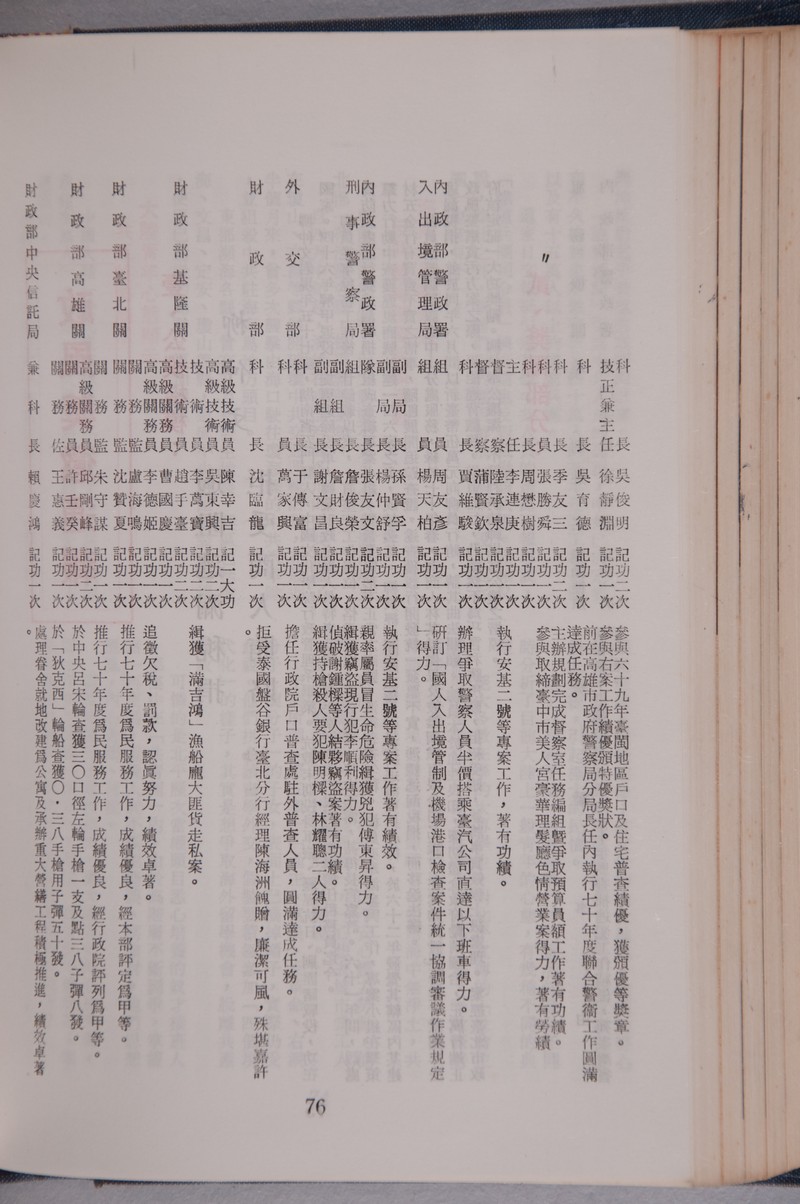 科長 吳俊明 記功二次 參與六十九年臺閩地區戶口及住宅普查績優，獲頒優等獎章。
技正兼主任 徐靜淵 記功一次 參與右案工作績優頒特優獎狀。
科長 吳育德 記功一次 前在高雄市政府警察局分局長任內執行七十年度聯合警衞工作圓滿
達成任務。
科長 季友三 記功二次 主辦規劃完成督察室任務編組暨爭取預算員額工作著有功績。
〃 科員 張勝舜 記功一次 參與取締臺中市美人宮豪華理髮廳色情營業案得力，著有勞績
科長 周懋樹 記功一次
主任 李連庚 記功一次 執行安基二號等專案工作，著有功績。
督察 陸承泉 記功一次
督察 蒲賢欽 記功一次
科長 賈維駿 記功一次 辦理爭取警察人員半價搭乘臺汽公司直達以下班車得力。
內政部警政署 組員 周友彥 記功一次 研訂「國人入出境管制及機場港口檢查案件統一協調審議作業規定
入出境管理局 組員 楊天柏 記功一次 」得力。
副局長 孫賢孚 記功一次 執行安基二號等專案工作著有績效。
副局長 楊仲舒 記功一次
內政部警政署 隊長 張友文 記功二次 親率屬員冒生命危險緝獲兇犯傅東昇得力。
刑事警察局 組長 詹俊榮 記功一次 緝獲竊盜現行犯李順利得力。
副組長 詹財良 記功一次 偵破謝鍾樑等人結夥竊盜案著有功績。
副組長 謝文昌 記功一次 緝獲持槍殺人要犯陳明樑、林耀聰二人得力。
外交部 科長 于傳富 記功一次 擔任行政院戶口普查處駐外普查人員，圓滿達成任務。
科員 萬家興 記功一次
財政部 科長 沈臨龍 記功一次 拒受泰國盤谷銀行臺北分行經理陳海洲餽贈，廉潔可風，殊堪嘉許
。
高級技術員 陳幸吉 記一大功
高級技術員 吳東興 記功二次
技術員 李萬寶 記功二次 緝獲「滿吉鴻」漁船龐大匪貨走私案。
財政部基隆關 技術員 趙手臺 記功二次
高級關務員 曹國慶 記功一次
高級關務員 李德姬 記功一次 追徵欠稅、罰款，認眞努力，績效卓著。
關務監 盧海鳴 記功一次 推行七十年度爲民服務工作，成績優良，經本部評定爲甲等。
財政部臺北關 關務監 沈贊夏 記功一次
關務監 朱守謀 記功一次 推行七十年度爲民服務工作，成績優良，經行政院評列爲甲等。
財政部高雄關 高級關務員 邱剛峰 記功二次 於中央呂宋輪查獲三〇口徑左輪手槍一支及點三八子彈八發。
關務員 許壬癸 記功一次
關務佐 王憲義 記功一次 於「狄克西」輪船查獲〇．三八手槍用子彈五十發。
財政部中央信託局 兼科長 賴慶鴻 記功一次 處理眷舍就地改建爲公寓及承辦重大營繕工程積極推進，績效卓著
。
76